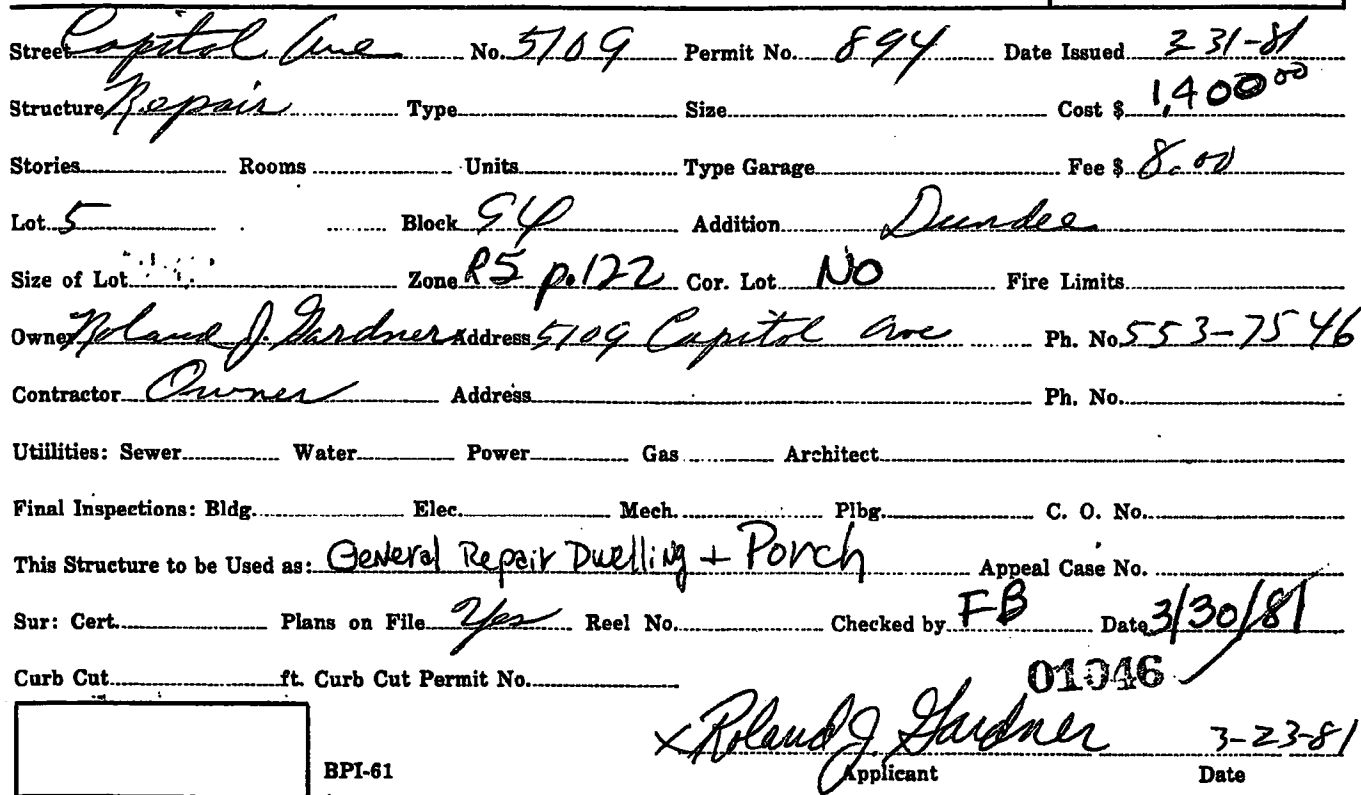 Street Capitol Ave No. 5109 Permit No. 894 Date Issued 3 31-81
Structure Repair Type Size Cost $ 1,400.00
Stories Rooms Units Type Garage Fee $ 8.00
Lot 5 Block 94 Addition Dundee
Size of Lot Zone R5 p.122 Cor. Lot NO Fire Limits
Owner Roland J. Gardner Address 5109 Capitol Ave Ph. No. 553-7546
Contractor Owner Address Ph. No.
Utiilities: Sewer Water Power Gas Architect
Final Inspections: Bldg. Elec. Mech. Plbg. C. O. No.
This Structure to be Used as: General Repair Dwelling + Porch Appeal Case No.
Sur: Cert. Plans on File Yes Reel No. Checked by FB Date 3/30/81
Curb Cut ft. Curb Cut Permit No. 01046
X Roland J. Gardner 3-23-81
BPI-61 Applicant Date